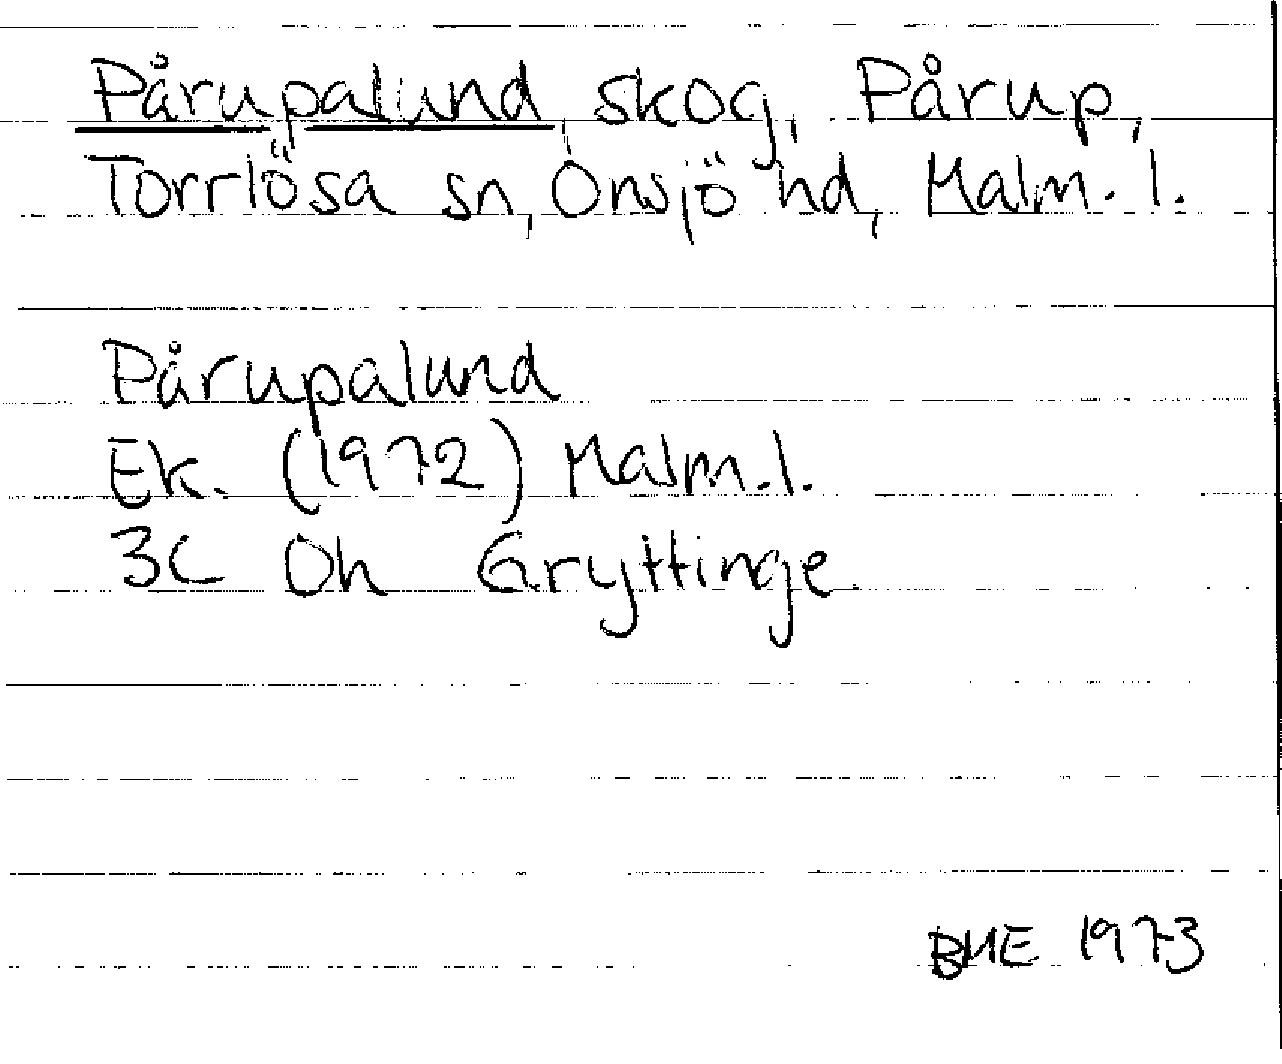 Pårupalund, skog, Pårup,
Torrlösa sn, Onsjö hd, Malm. l.
Pårupalund
Ek. (1972) Malm. l.
3C Oh Gryttinge
BME 1973